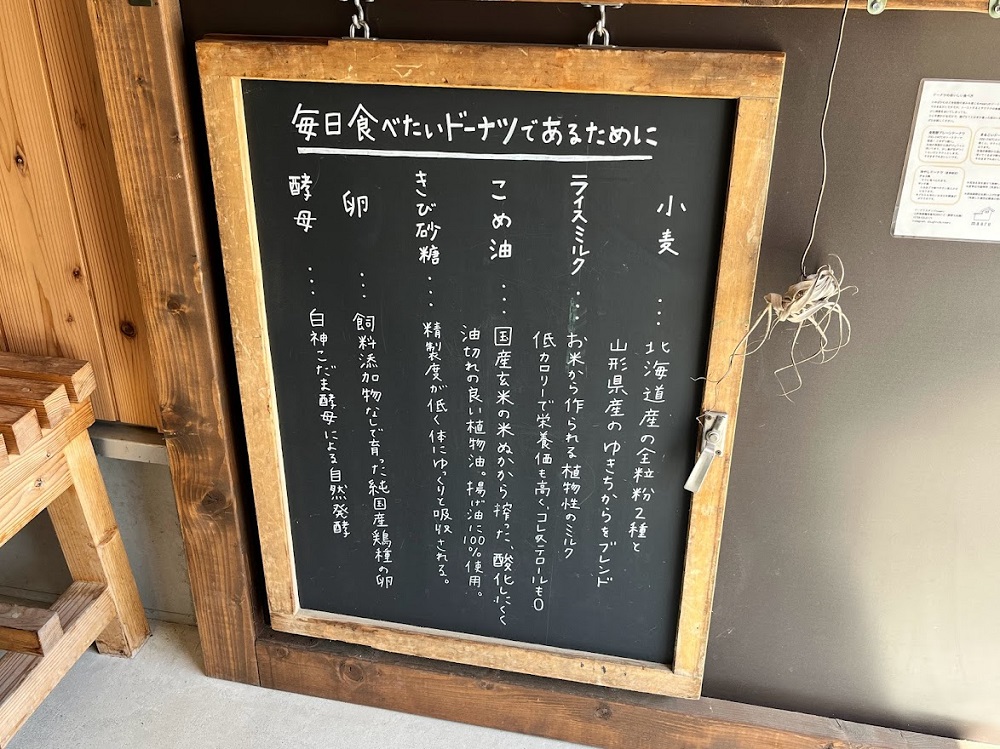 毎日食べたいドーナツであるために
小麦 ... 北海道産の全粒粉2種と
山形県産のゆきちからをブレンド
ライスミルク ... お米から作られる植物性のミルク
低カロリーで栄養価も高く、コレステロールも0
こめ油 ... 国産玄米の米ぬかから搾った、酸化しにくく
油切れの良い植物油。揚げ油に100%使用。
きび砂糖 ... 精製度が低く体にゆっくりと吸収される。
卵 ... 飼料添加物なしで育った純国産鶏種の卵
酵母 ... 白神こだま酵母による自然発酵